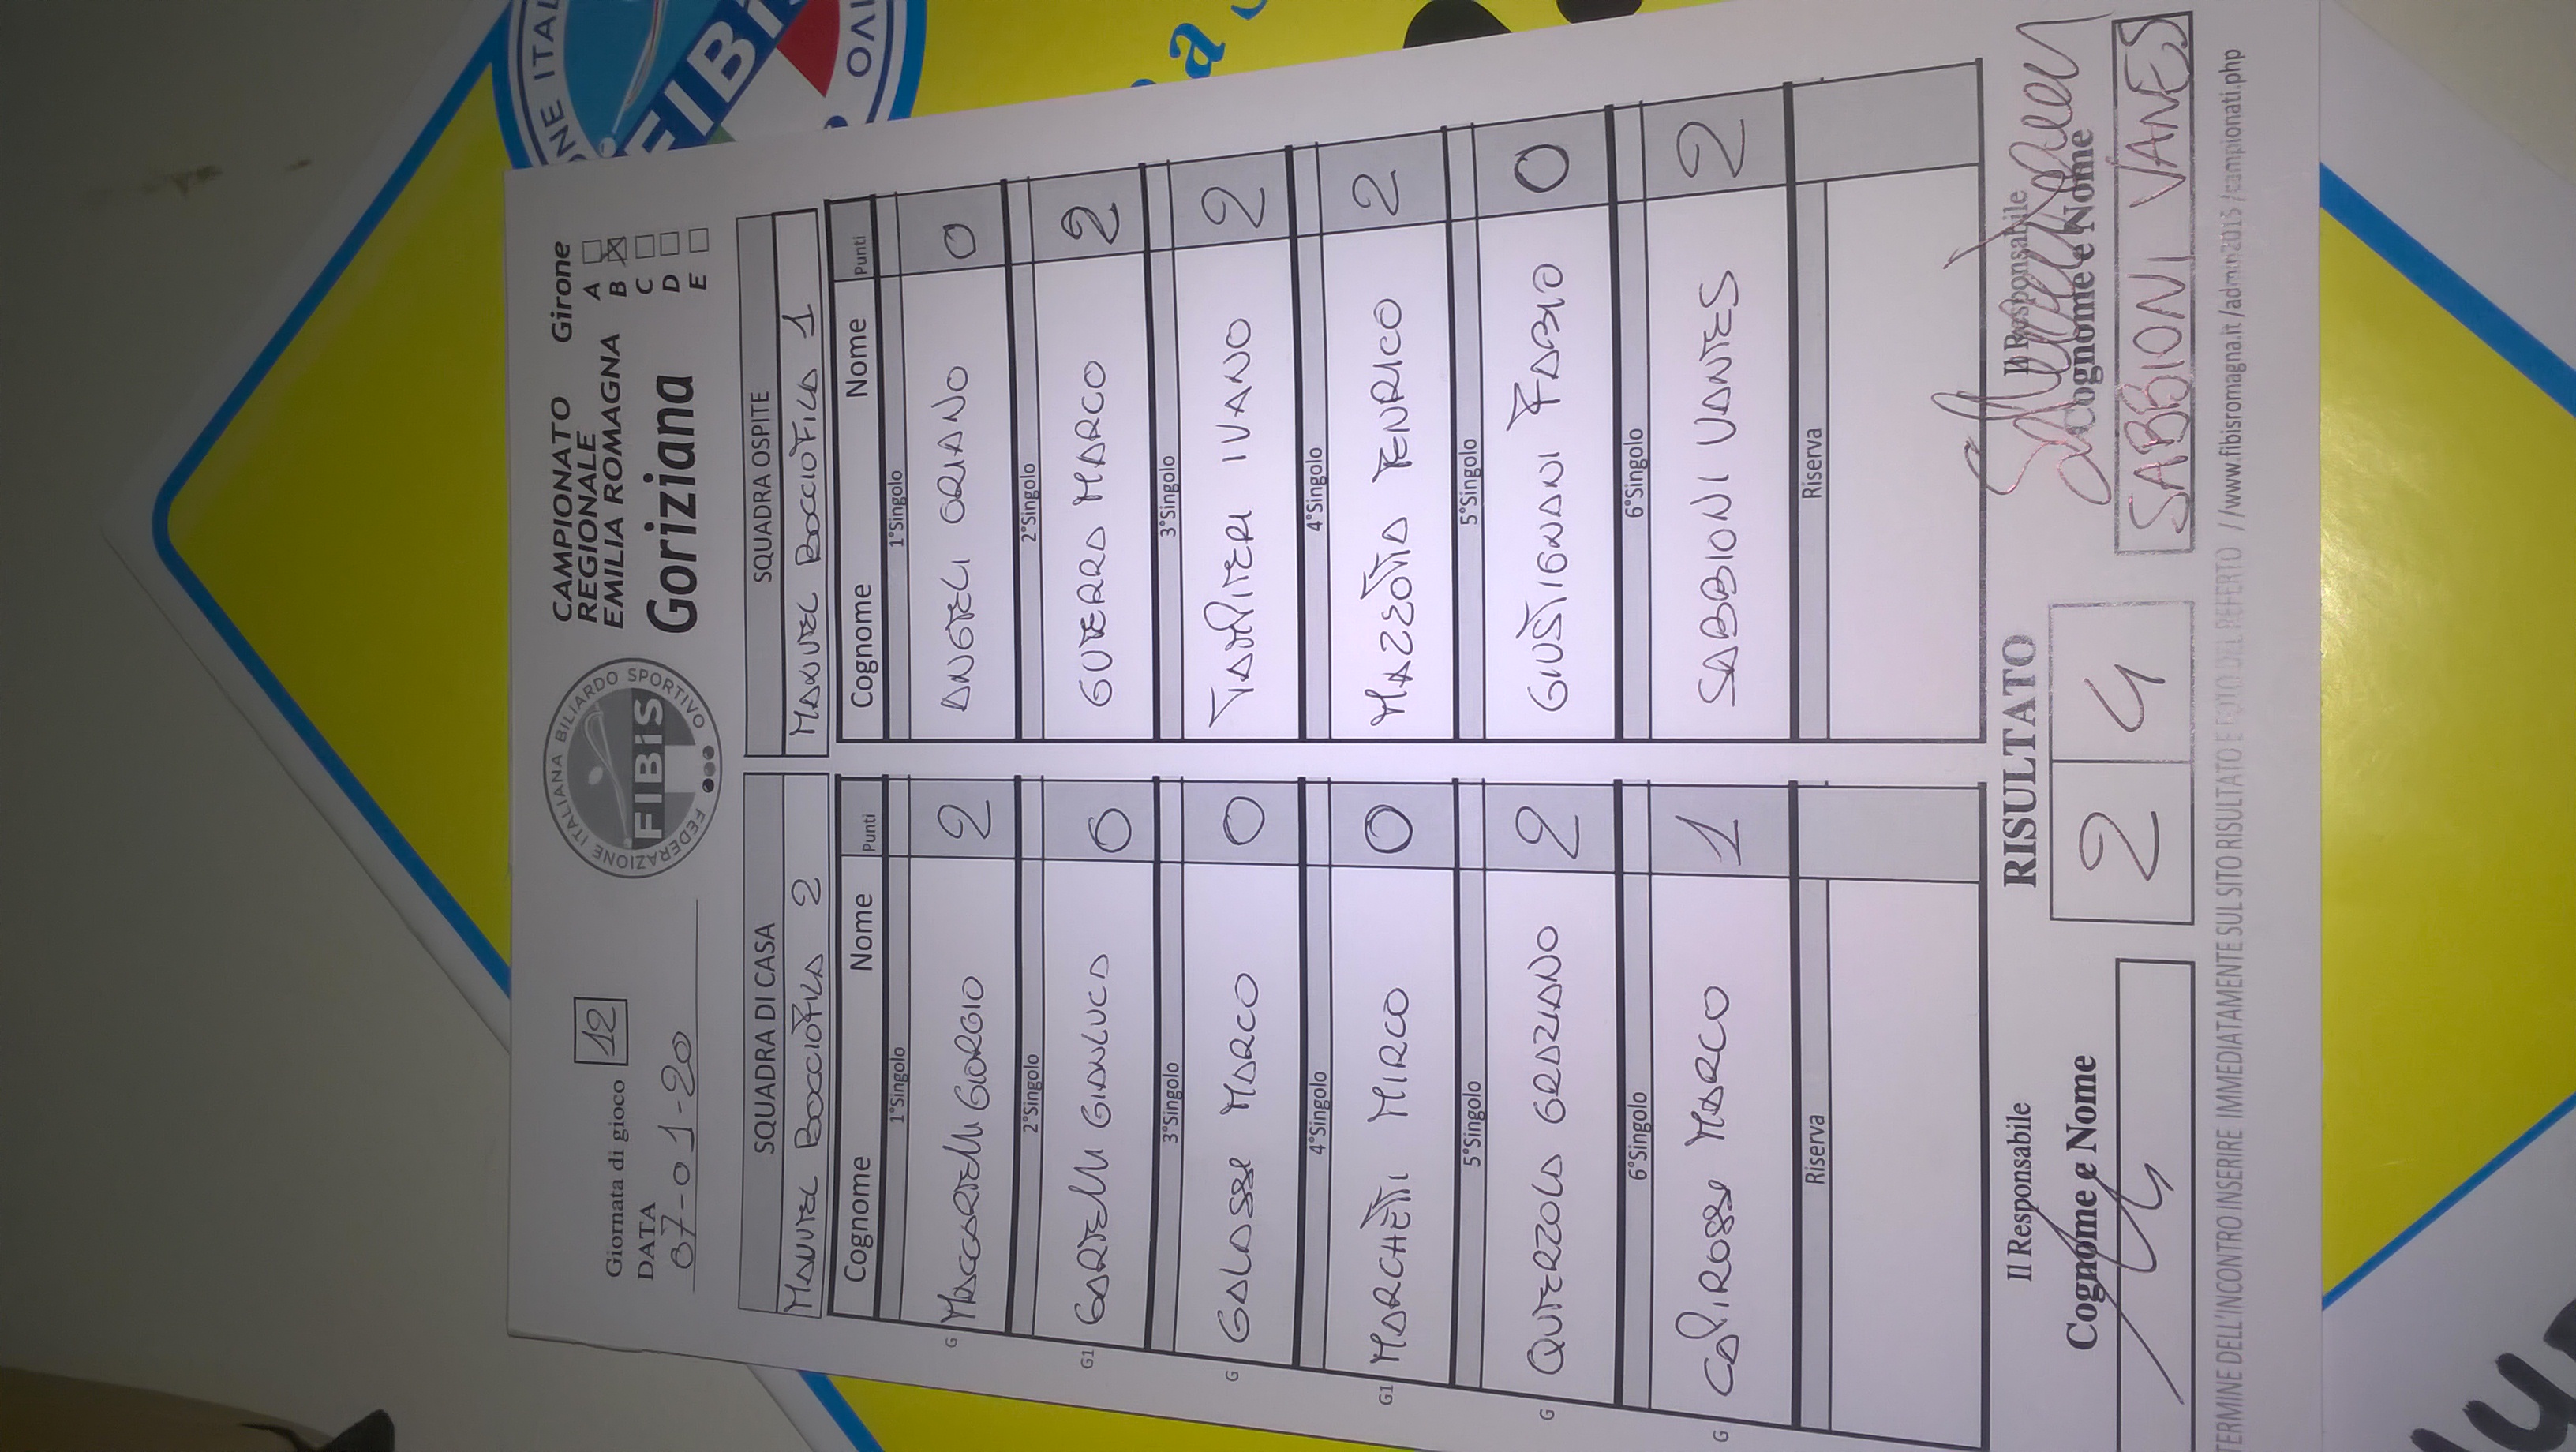 Giornata di gioco 12
DATA
07-01-20
FEDERAZIONE ITALIANA BILIARDO SPORTIVO
FIBiS
CAMPIONATO
REGIONALE
EMILIA ROMAGNA
Goriziana
Girone
A
B
C
D
E
SQUADRA DI CASA
MANUEL BOCCIOFILA 2
Cognome Nome Punti
1°Singolo
G MACCARIELLI GIORGIO 2
2°Singolo
G1 GARIELLI GIANLUCA 0
3°Singolo
G GALASSI MARCO 0
4°Singolo
G1 MARCHETTI MIRCO 0
5°Singolo
G QUERZOLA GRAZIANO 2
6°Singolo
G CAPIROSSI MARCO 1
Riserva
SQUADRA OSPITE
MANUEL BOCCIOFILA 1
Cognome Nome Punti
1°Singolo
ANGELI ORIANO 0
2°Singolo
GUERRA MARCO 2
3°Singolo
TAMPIERI IVANO 2
4°Singolo
MAZZOTTA ENRICO 2
5°Singolo
GIUSTIGNANI FABIO 0
6°Singolo
SABBIONI VANES 2
Riserva
Il Responsabile
Cognome e Nome
RISULTATO
2 4
Il Responsabile
Cognome e Nome
SABBIONI VANES
TERMINE DELL'INCONTRO INSERIRE IMMEDIATAMENTE SUL SITO RISULTATO E FOTO DEL REFERTO //www.fibisromagna.it/admin2015/campionati.php